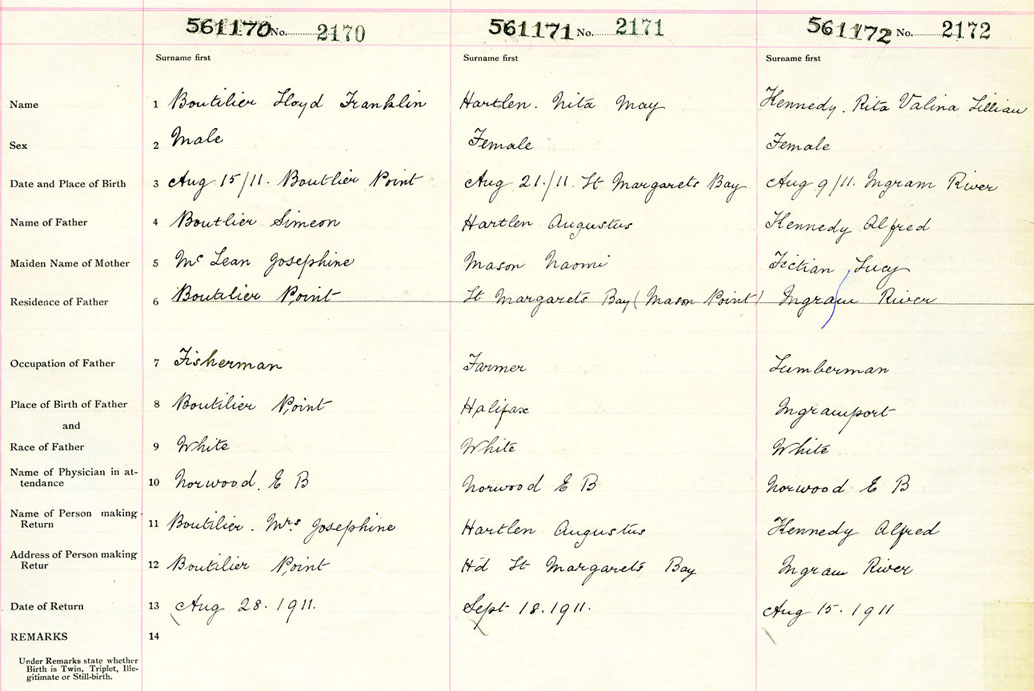 561170 No. 2170 561171 No. 2171 561172 No. 2172
Surname first Surname first Surname first
Name 1 Boutilier Lloyd Franklin Hartlen. Nita May Kennedy. Rita Valina Lillian
Sex 2 Male Female Female
Date and Place of Birth 3 Aug 15/11. Boutlier Point Aug 21./11. St Margarets Bay Aug 9/11. Ingram River
Name of Father 4 Boutlier Simeon Hartlen Augustus Kennedy Alfred
Maiden Name of Mother 5 Mc Lean Josephine Mason Naomi Lucy
Residence of Father 6 Boutilier Point St Margarets Bay (Mason Point) Ingram River
Occupation of Father 7 Fisherman Farmer Lumberman
Place of Birth of Father 8 Boutilier Point Halifax Ingramport
and
Race of Father 9 White White White
Name of Physician in at-
tendance 10 Norwood. E B Norwood E B Norwood E B
Name of Person making
Return 11 Boutilier. Mrs Josephine Hartlen Augustus Kennedy Alfred
Address of Person making
Retur 12 Boutilier Point H'd St Margarets Bay Ingram River
Date of Return 13 Aug 28. 1911. Sept 18. 1911. Aug 15. 1911
REMARKS 14
Under Remarks state whether
Birth is Twin, Triplet, Ille-
gitimate or Still-birth.